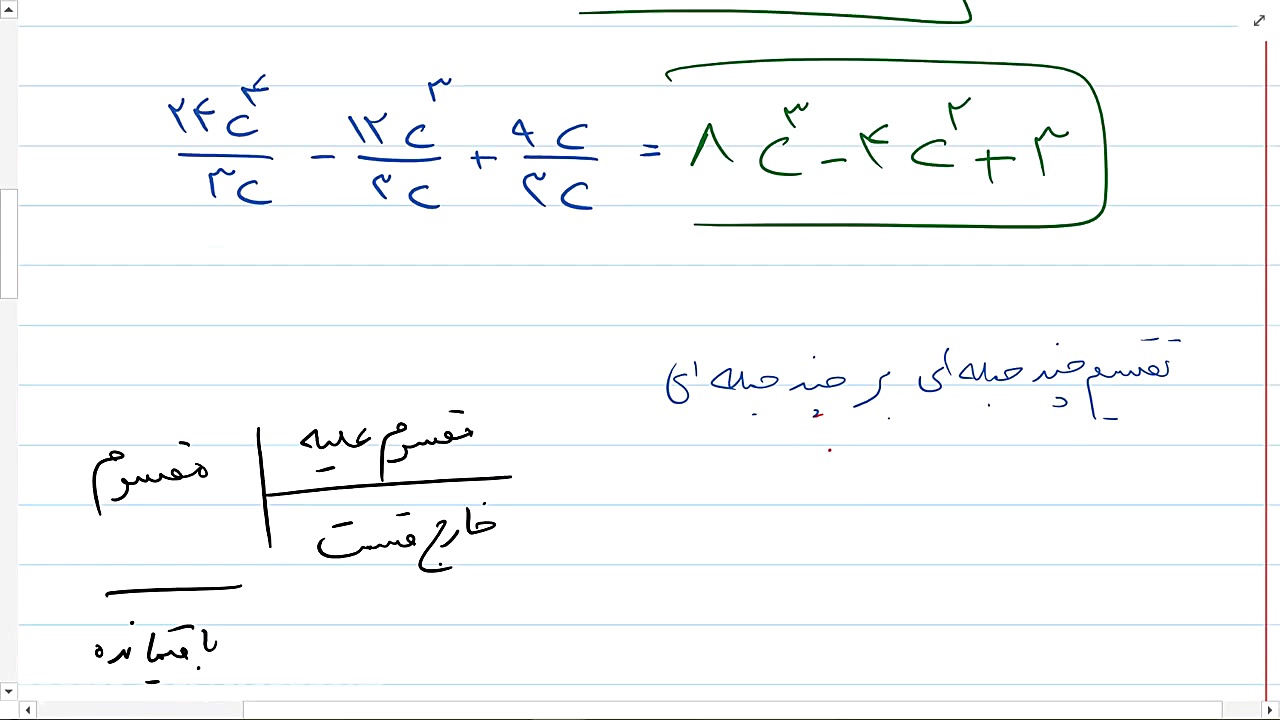 ۲۴c^۴/۳c - ۱۲c^۳/۳c + ۹c/۳c = ۸c^۳ - ۴c^۲ + ۳
تقسیم چند جمله ای بر چند جمله ای
مقسوم علیه
مقسوم
خارج قسمت
باقیمانده